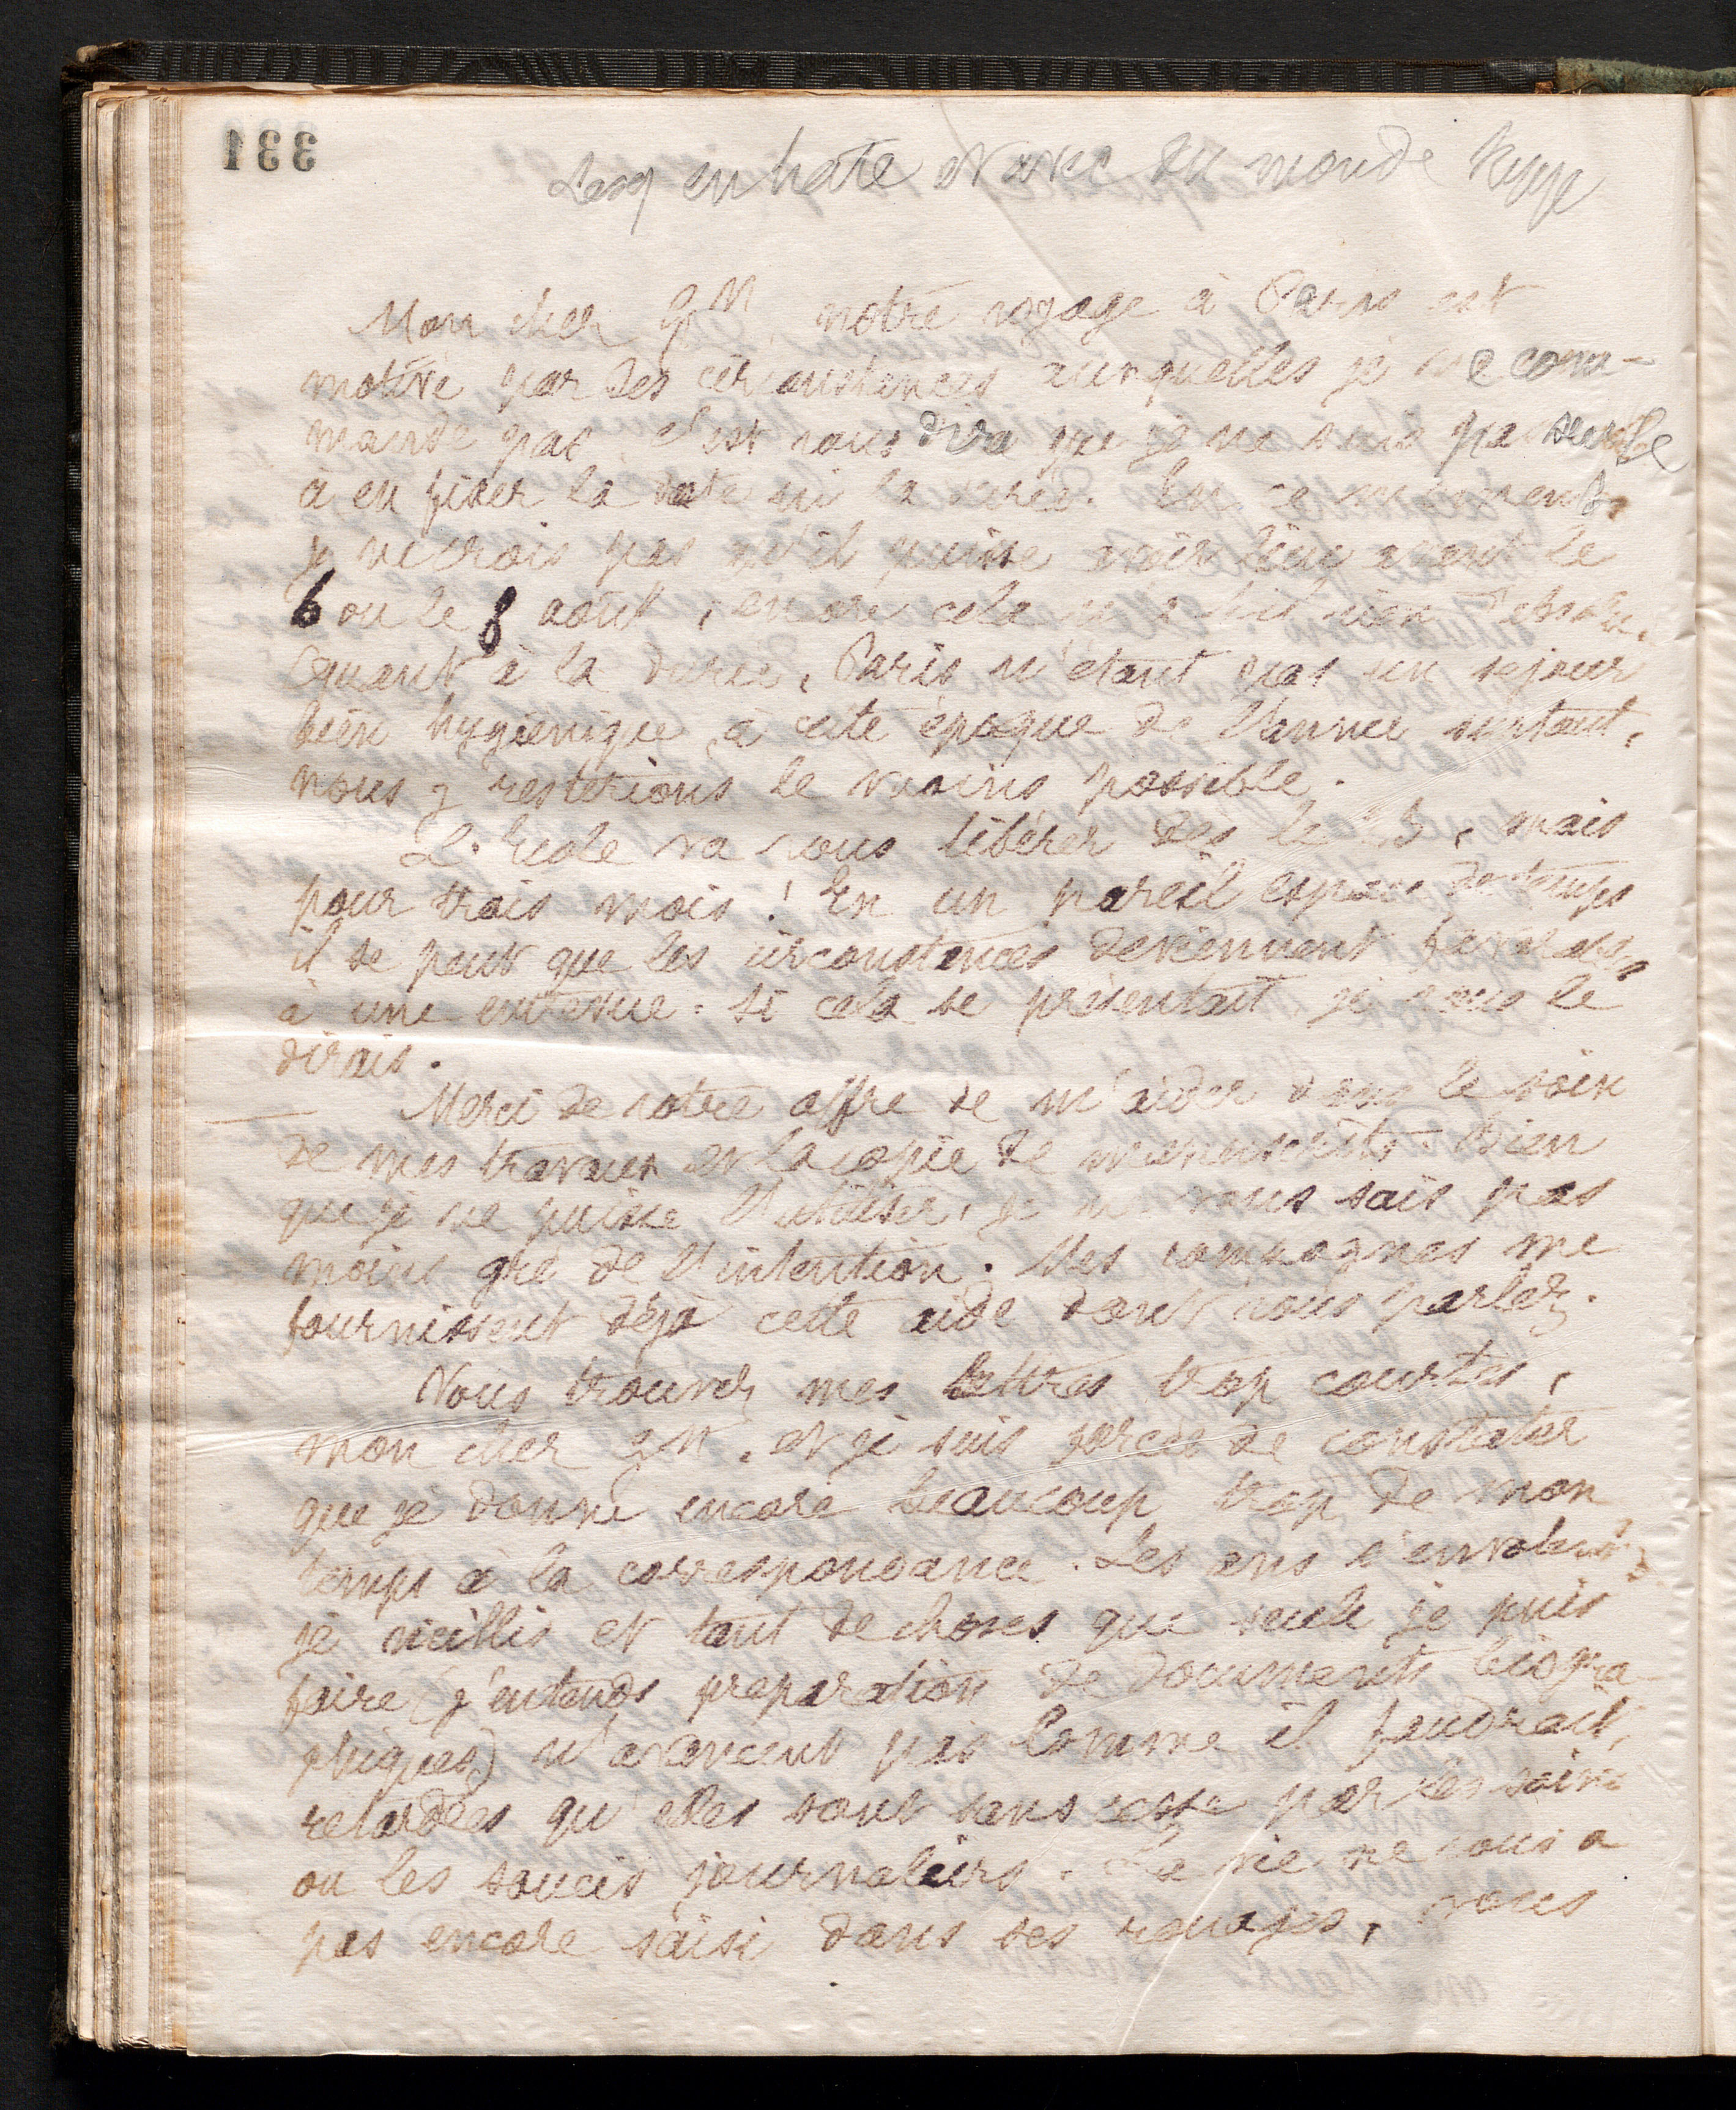 331
en hâte avec du monde
Mon cher GN, notre voyage à Paris est
motivé par des circonstances auxquelles je ne com-
mande pas, c'est vous dire que je ne suis pas seule
à en fixer la date ni la durée. En ce moment,
je ne crois pas qu'il puisse avoir lieu avant le
6 ou le 8 août, encore cela n'a-t-il rien d'absolu.
Quant à la durée, Paris n'étant pas un séjour
bien hygiénique à cette époque de l'année surtout,
nous y resterions le moins possible.
L'École va vous libérer dès le 25, mais
pour trois mois! En un pareil espace de temps
il se peut que les circonstances deviennent favorables
à une entrevue: si cela se présentait je vous le
dirais.
Merci de votre offre de m'aider dans le soin
de mes travaux et la copie de manuscrits. Bien
que je ne puisse l'utiliser, je ne vous sais pas
moins gré de l'intention. Mes compagnes me
fournissent déjà cette aide dont vous parlez.
Vous trouvez mes lettres trop courtes,
mon cher GN, et je suis forcée de constater
que je donne encore beaucoup trop de mon
temps à la correspondance. Les ans s'envolent,
je vieillis et tant de choses que seule je puis
faire (j'entends préparation de documents biogra-
phiques) n'avancent pas comme il faudrait,
retardées qu'elles sont sans cesse par les soins
ou les soucis journaliers. La vie ne vous a
pas encore saisi dans ses rouages, vous